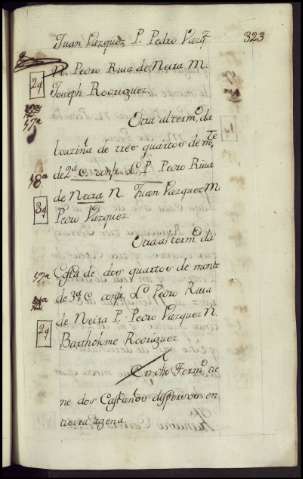 Juan Vazquez P. Pedro Vazqz 323
N. Pedro Ruia de Neira M.
2q
Joseph Rodriguez.
Otra al term. da
touzina de tres quartos de mte
18a
de 2da C. confr. L. P. Pedro Riua
de Neira N. Juan Vazquez M.
3q
Pedro Vazquez
Otra al term. da
17a
Costa de dos quartos de monte
de 3a C. confr. L. Pedro Riua
de Neira P. Pedro Vazquez N.
2q
Bartholome Rodriguez
Onofre Fernz. ne
ne dos Castaños dispersos en
tierra agena